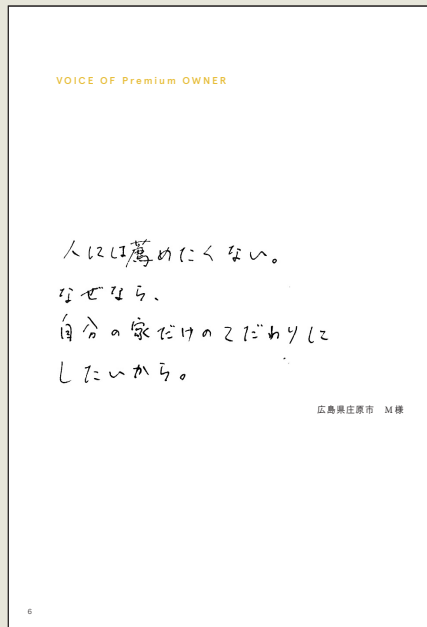 VOICE OF Premium OWNER
人には薦めたくない。
なぜなら、
自分の家だけのこだわりに
したいから。
広島県庄原市　M様
6